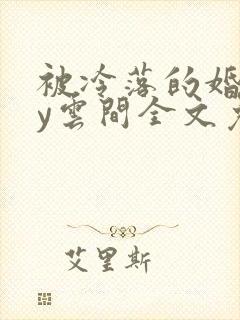 被冷落的婚
y雲間全文
艾里斯